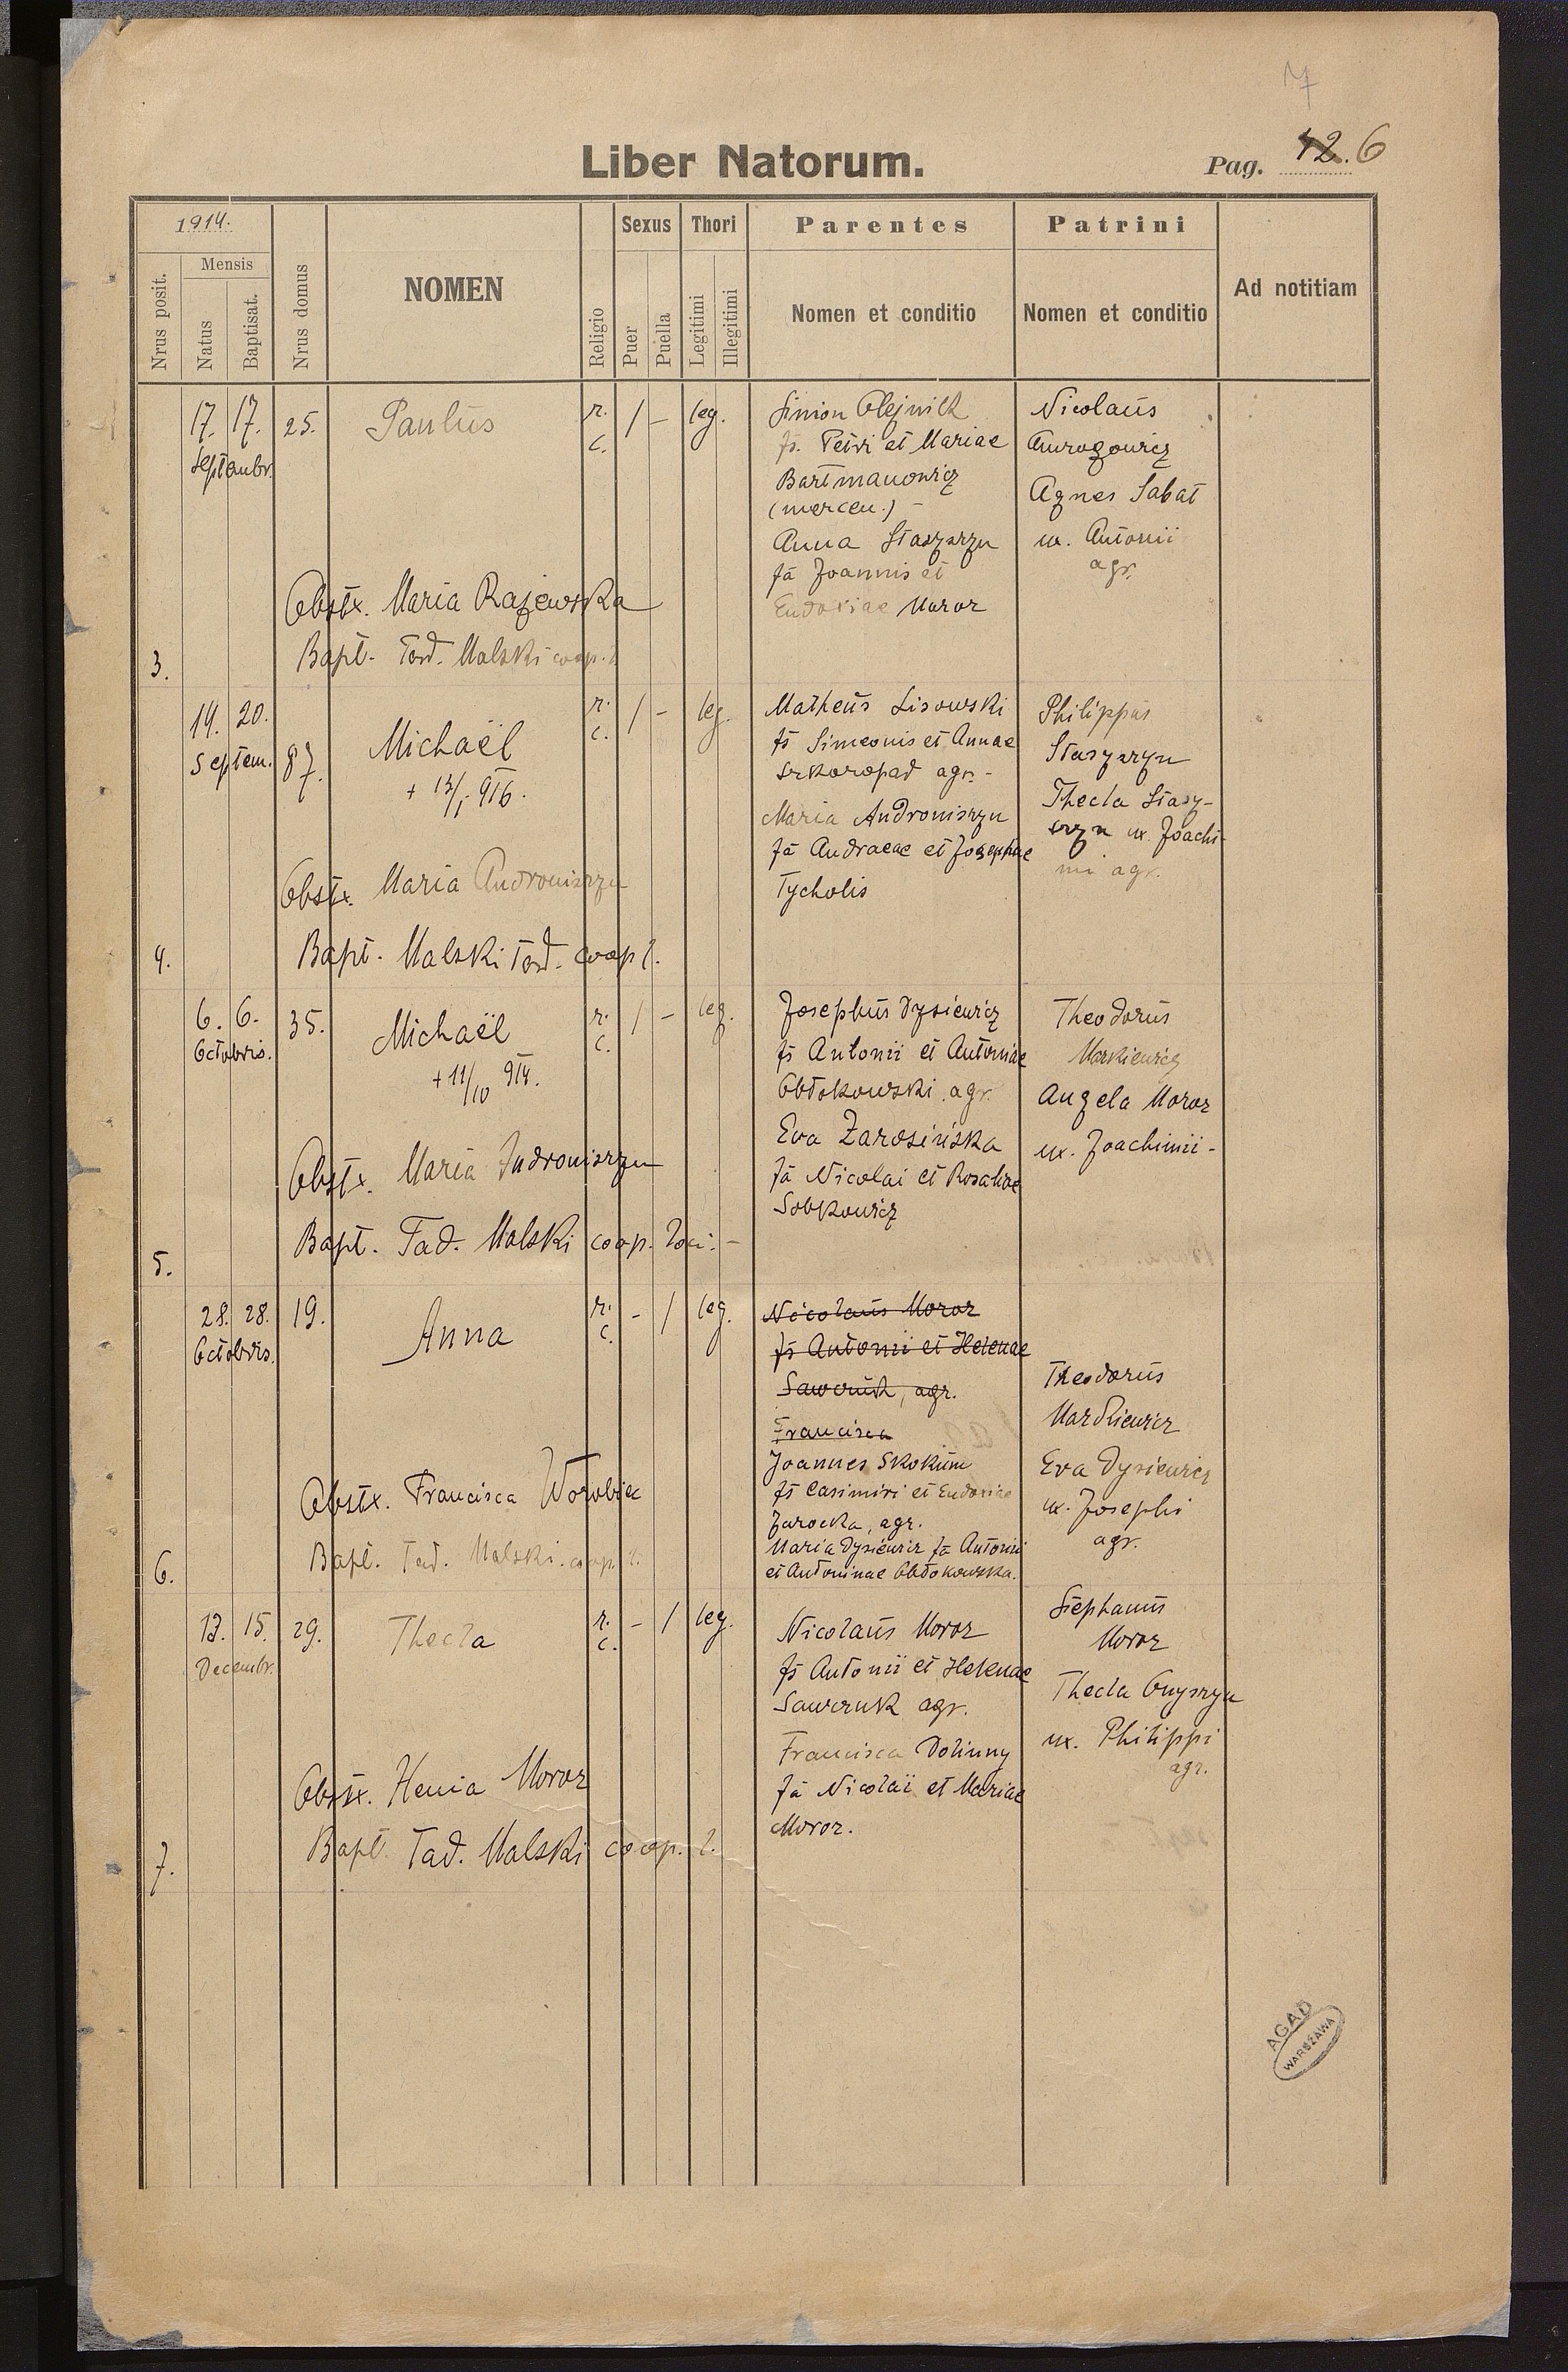 7
Liber Natorum.
Pag. 12. 6
1914.
Mensis
Nrus posit.
Natus
Baptisat.
Nrus domus
NOMEN
Religio
Sexus
Puer
Puella
Thori
Legitimi
Illegitimi
Parentes
Nomen et conditio
Patrini
Nomen et conditio
Ad notitiam
3.
17. 17.
Septembr.
25.
Paulus
r.
c.
/ -
leg.
Simion Olejnik
fs. Petri et Mariae
Bartmanowicz
(mercen.) -
Anna Staszszyn
fa Joannis et
Eudoxiae Moroz
Nicolaus
Agnes Sabat
ux. Antonii
agr.
Obstx. Maria Rajewska
Bapt. Tad. Malski coop. l.
4.
19. 20.
Septem.
87.
Michaël
+ 13/1 916.
r.
c.
/ -
leg.
Matheus Lisowski
fs Simeonis et Annae
Szkoropad agr. -
Maria Androniszyn
fa Andraeae et Josephae
Tycholis
Philippus
Staszszyn
Thecla Stasz-
szyn ux. Joachi-
mi agr.
Obstx. Maria Androniszyn
Bapt. Malski Tad. coop l.
5.
6. 6.
Octobris.
35.
Michaël
+ 11/10 914.
r.
c.
/ -
leg.
Josephus Dysiewicz
fs Antonii et Antoniae
Obtokowski agr.
Eva Zarosińska
fa Nicolai et Rosaliae
Sobkowicz
Theodorus
Markiewicz
Angela Moroz
ux. Joachimii -
Obstx. Maria Androniszyn
Bapt. Tad. Malski coop. loci. -
6.
28. 28.
Octobris.
19.
Anna
r.
c.
- /
leg.
Nicolaus Moroz
fs Antonii et Helenae
Sawczuk, agr.
Francisca
Joannes Skokum
fs Casimiri et Eudoxiae
Zarocka, agr.
Maria Dysiewicz fa Antonii
et Antoninae Obtokowska.
Theodorus
Markiewicz
Eva Dysiewicz
ux. Josephi
agr.
Obstx. Francisca Worobiec
Bapt. Tad. Malski. coop. l.
7.
13. 15.
Decembr.
29.
Thecla
r.
c.
- /
leg.
Nicolaus Moroz
fs Antonii et Helenae
Sawczuk agr.
Francisca Dolinny
fa Nicolai et Mariae
Moroz.
Stephanus
Moroz
Thecla Onyszyn
ux. Philippi
agr.
Obstx. Henia Moroz
Bapt. Tad. Malski coop. l.
AGAD
WARSZAWA